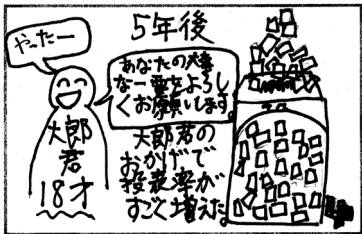 5年後
やったー
あなたの大事
な一票をよろし
くお願いします。
太郎
君
18才
太郎君の
おかげで
投表率が
すごく増えた。